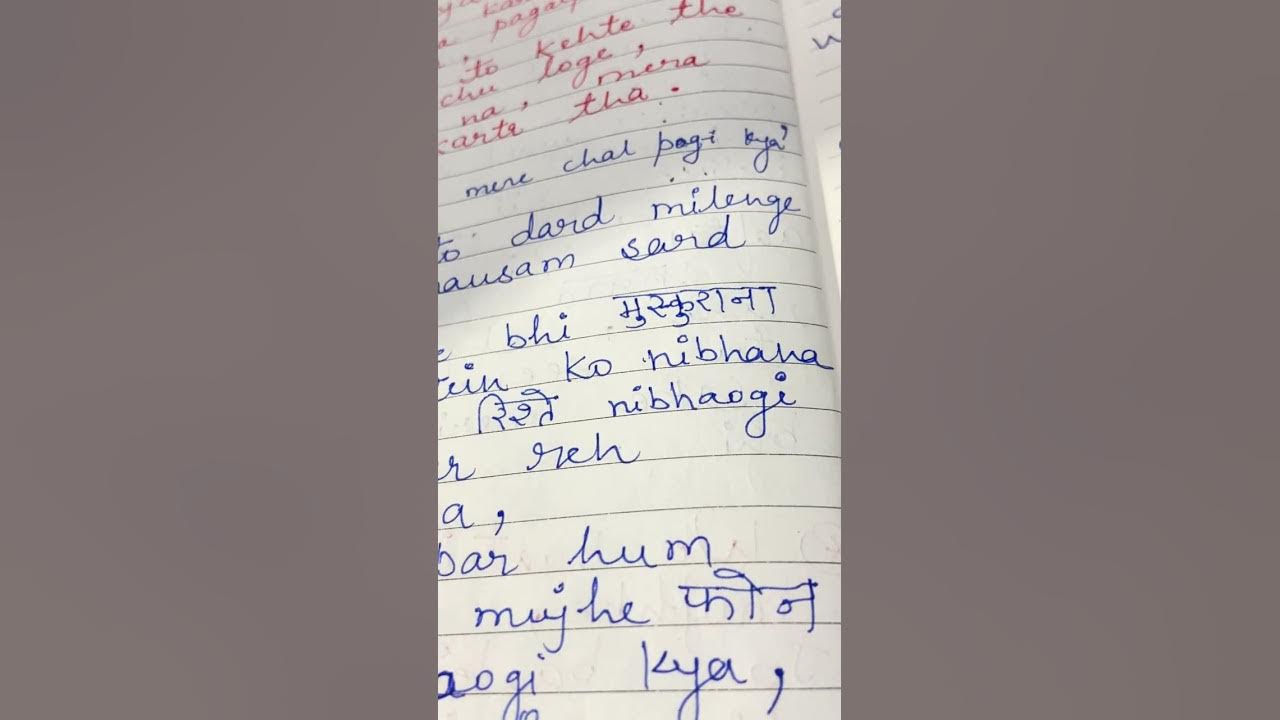 kar
pagal
to kehte the
chu loge,
na, mera
karte tha.
mere chal pogi kya'
to dard milenge
mausam sard
bhi मुस्कुराना
ko nibhana
रिश्ते nibhaogi
reh
a,
bar hum
mujhe फोन
aogi kya,